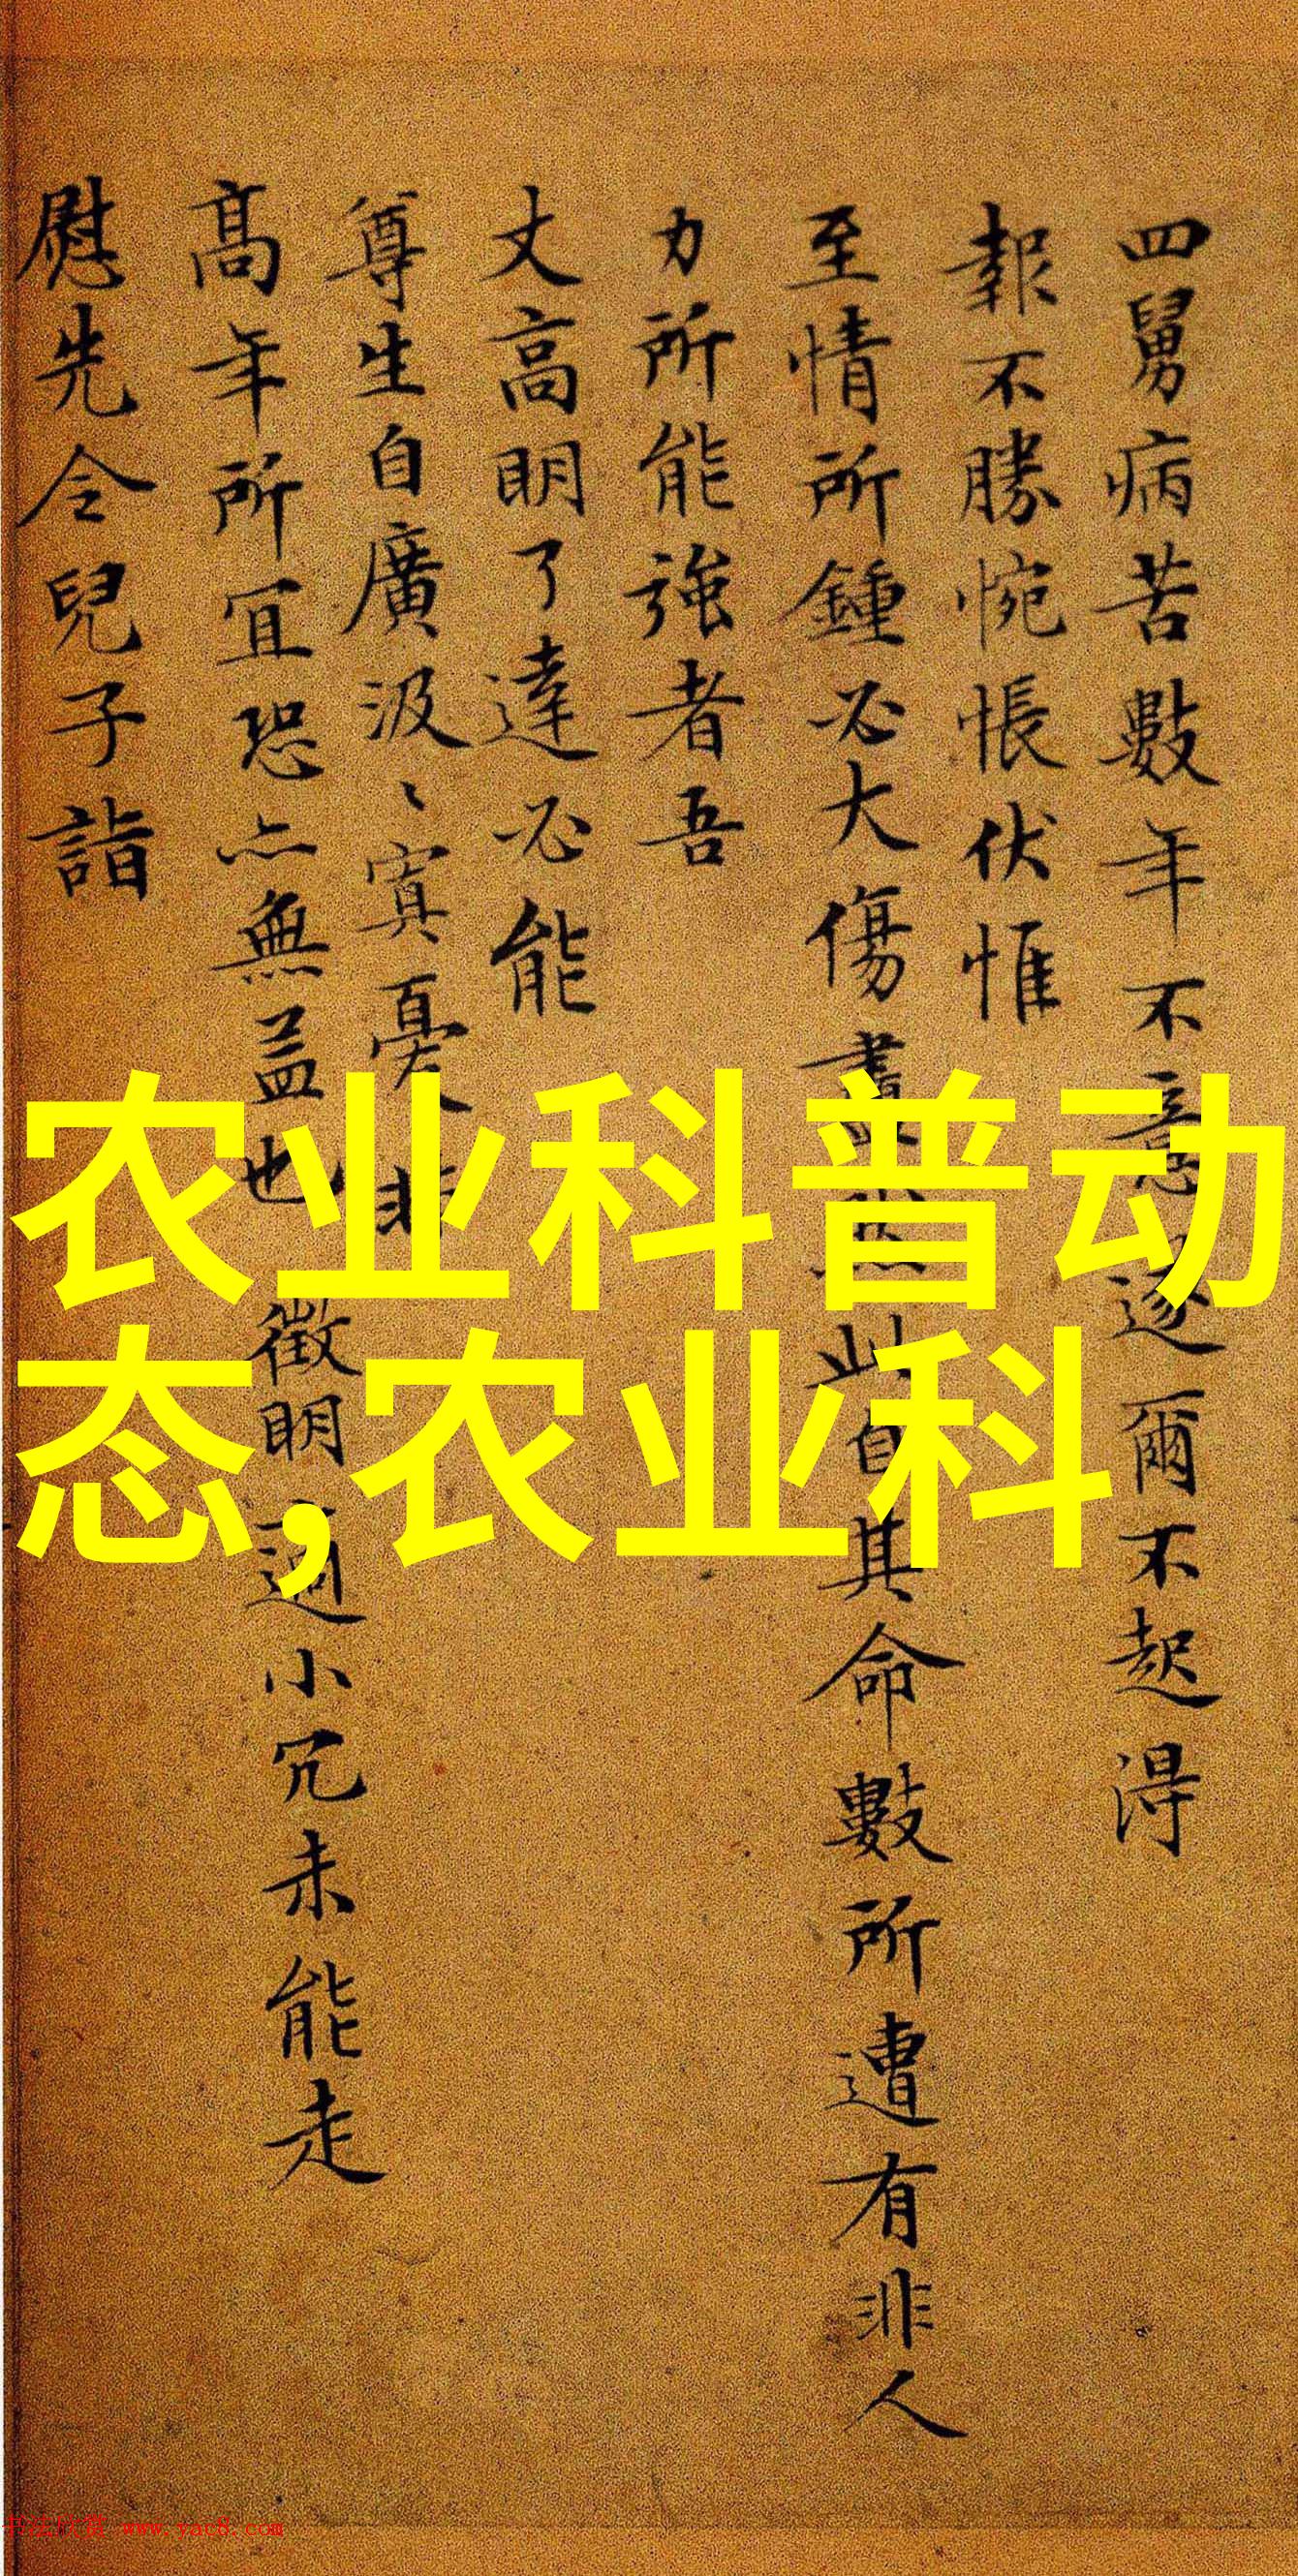 四舅病苦數年不意遂爾不起得
報不勝惋悵伏惟
至情所鍾必大傷盡然此自其命數所遭有非人
力所能強者吾
丈高明了達必能
尊生自廣汲〻寘憂非
高年所宜恐亦無益也徵明適小冗未能走
慰先令兒子詣
农业科普动
态,农业科
书法欣赏 www.yac8.com